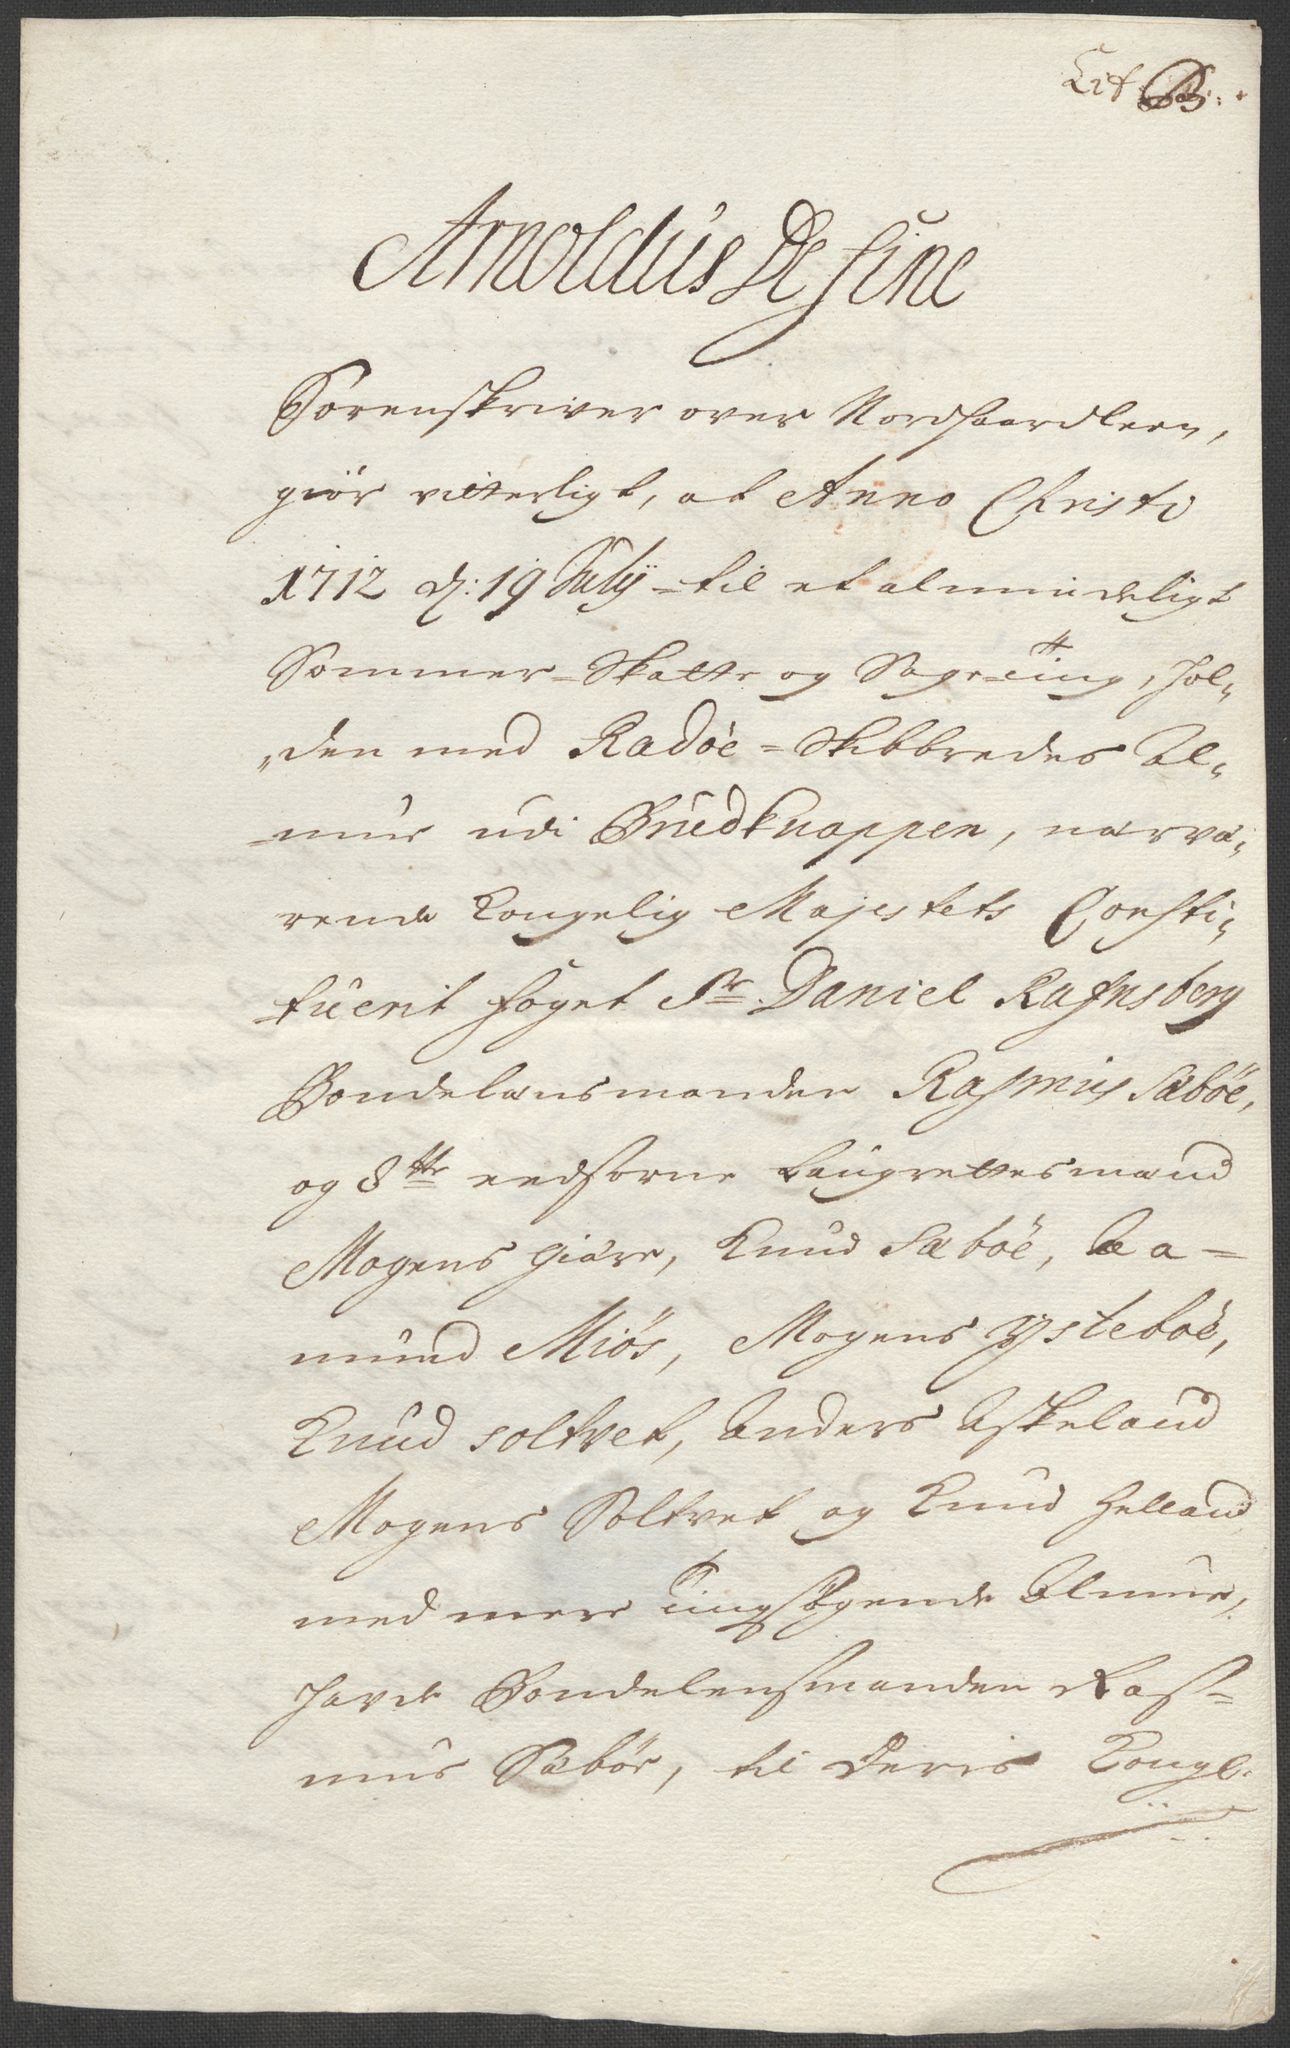 Lit B:
Arnoldus De Fine
Sorenskriver over Nordhordlen,
giör vitterligt, at Anno Christi
1712 d: 19 Julij til et almindeligt
Sommer-Skatte og Sage-ting, hol-
den med Radöe-Skibbredes Al-
mue udi Bruedknappen, nærvæ-
rende Kongelig Majestets Consti-
tuerit foget Sr. Daniel Rafnsberg
Bondelænsmanden Rasmus Sæböe,
og 8tte eedsorne laugrettesmænd
Mogens Giäre, Knud Sæböe, Aa-
mund Miös, Mogens Ysteböe,
Knud Soltvet, Anders Askeland
Mogens Soltvet og Knud Helland
med mere tingsögende Almue,
havde Bondelensmanden Ras-
mus Sæböe, til Deris Kongl.